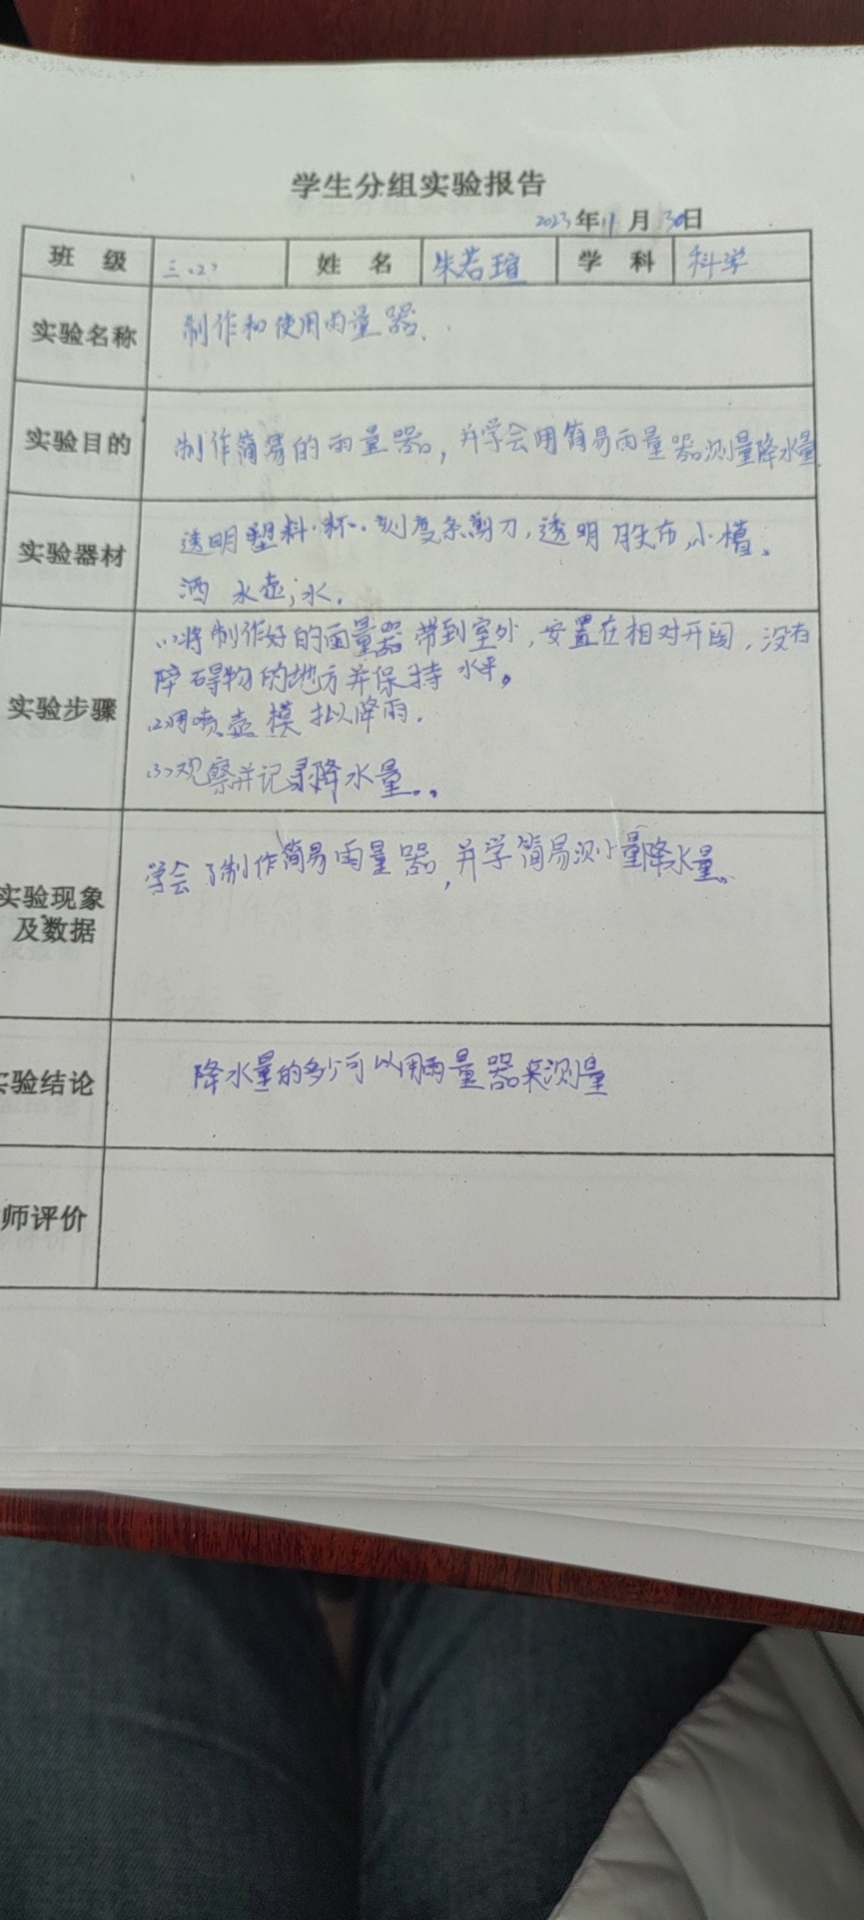 学生分组实验报告
2023年11月30日
班 级 三(2) 姓 名 朱若瑄 学 科 科学
实验名称 制作和使用雨量器.
实验目的 制作简易的雨量器，并学会用简易雨量器测量降水量
实验器材 透明塑料杯、刻度条剪刀,透明胶布,小槽、
洒水壶;水.
(1)将制作好的雨量器带到室外,安置在相对开阔,没有
障碍物的地方并保持水平。
实验步骤
(2)用喷壶模拟降雨.
(3)观察并记录降水量。
学会了制作简易雨量器,并学简易测量降水量。
实验现象
及数据
实验结论 降水量的多少可以用雨量器来测量
师评价